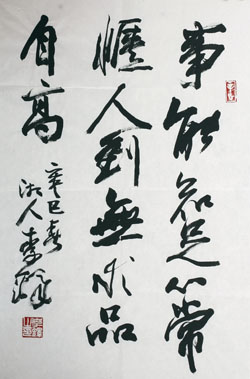 事能知足心常
惬人到無求品
自高
辛巳春
湖人李鐸